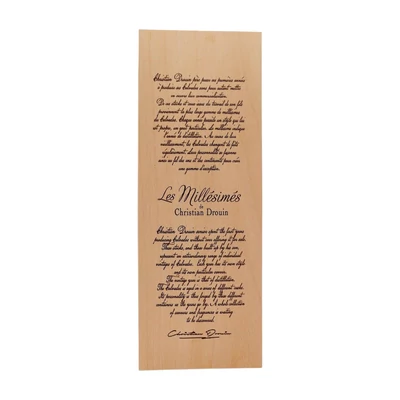 Christian Drouin père passa ses premières années
à produire du Calvados sans pour autant mettre
en oeuvre leur commercialisation.
De ce stocks et issu du travail de son fils
proviennent la plus large gamme de millésimes
de Calvados. Chaque année possède un style qui lui
est propre, un goût particulier. Le millésime indique
l'année de distillation. Au cours de leur
vieillissement, les Calvados changent de fûts
régulièrement. Leur personnalité se forme
ainsi au fil des ans et des continents pour créer
une gamme d'exception.
Les Millésimés
de
Christian Drouin
Christian Drouin senior spent the first years
producing Calvados without ever offering it for sale.
These stocks, and those built up by his son,
represent an extraordinary range of individual
vintages of Calvados. Each year has its own style
and its own particular nuances.
The vintage year is that of distillation.
The Calvados is aged in a series of different casks.
Its personality is thus forged by these different
containers as the years go by. A whole collection
of aromas and fragrances is waiting
to be discovered.
Christian Drouin